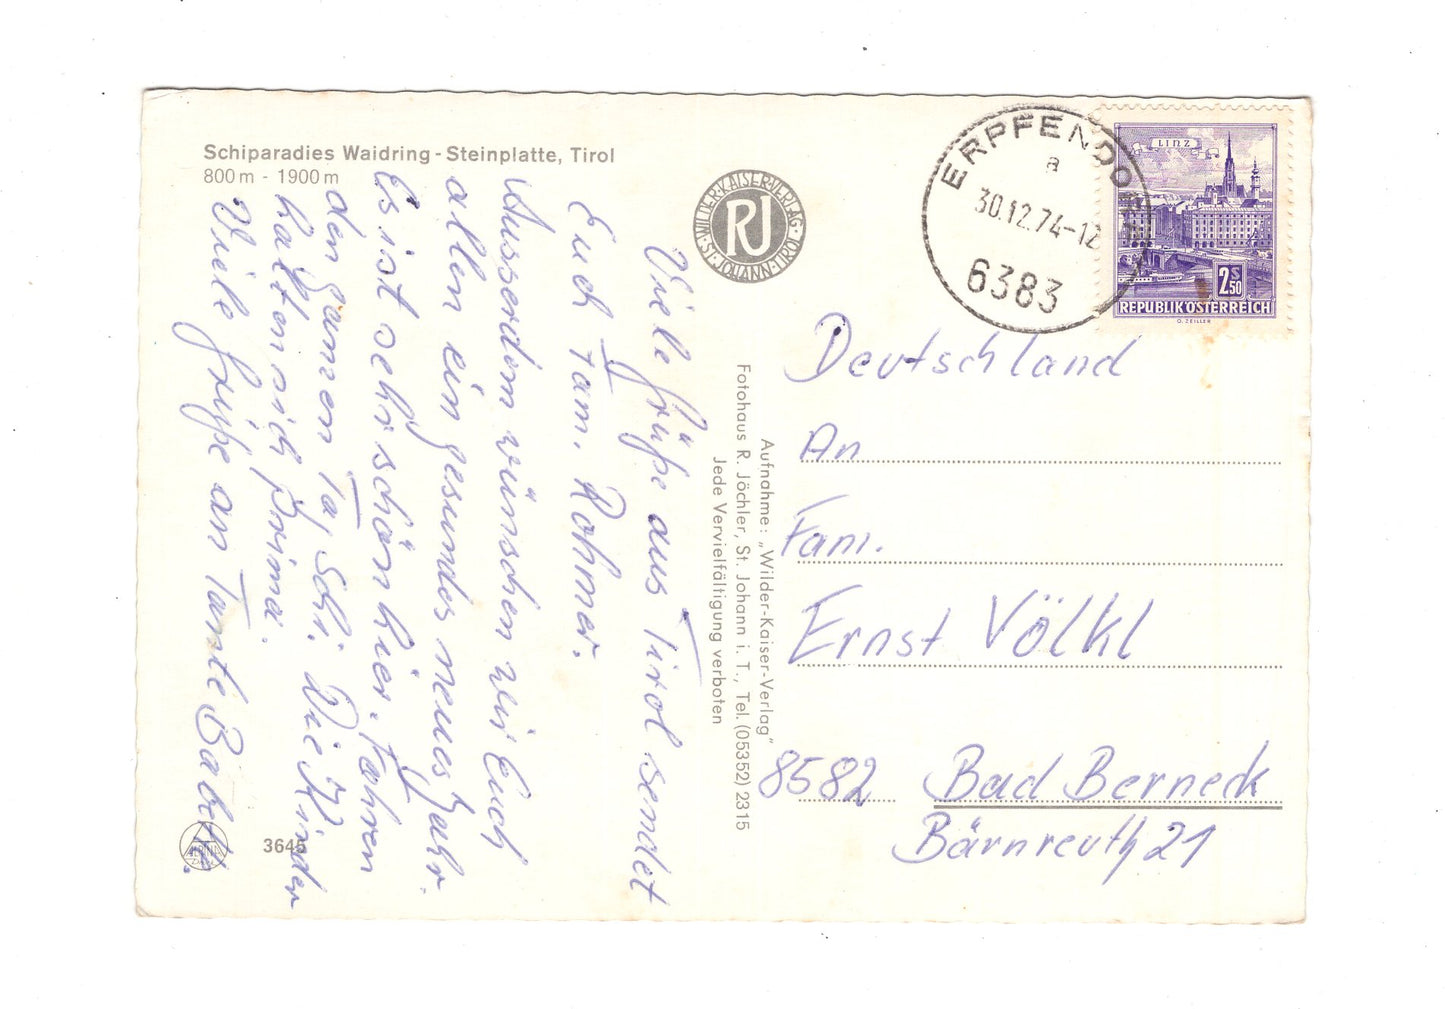 Schiparadies Waidring - Steinplatte, Tirol
800 m - 1900 m
WILDER-KAISER-VERLAG
ST. JOHANN-TIROL
RJ
ERPFENDORF
a
30.12.74-12
6383
LINZ
2 S 50
REPUBLIK ÖSTERREICH
O. ZEILLER
Viele Grüße aus Tirol sendet
Euch Fam. Rohmer.
Ausserdem wünschen wir Euch
allen ein gesundes neues Jahr.
Es ist sehr schön hier. Fahren
den ganzen Tag Schi. Die Kinder
halten sich prima.
Viele Grüße an Tante Babette.
Aufnahme: „Wilder-Kaiser-Verlag"
Fotohaus R. Jöchler, St. Johann i. T., Tel. (05352) 2315
Jede Vervielfältigung verboten
Deutschland
An
Fam.
Ernst Völkl
8582 Bad Berneck
Bärnreuth 21
3645